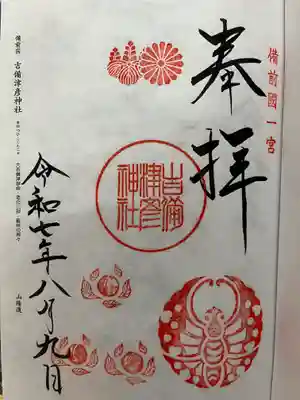 備前國一宮
奉拝
吉備
津彦
神社
令和七年八月九日
備前国 吉備津彦神社
山陽道